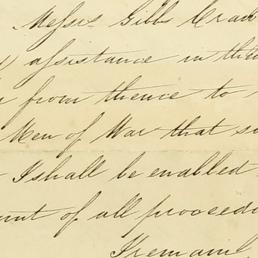 Messrs Gibb Craw
assistance in the
from thence to
Men of War that s
I shall be enabled
unt of all proceedi
I remain